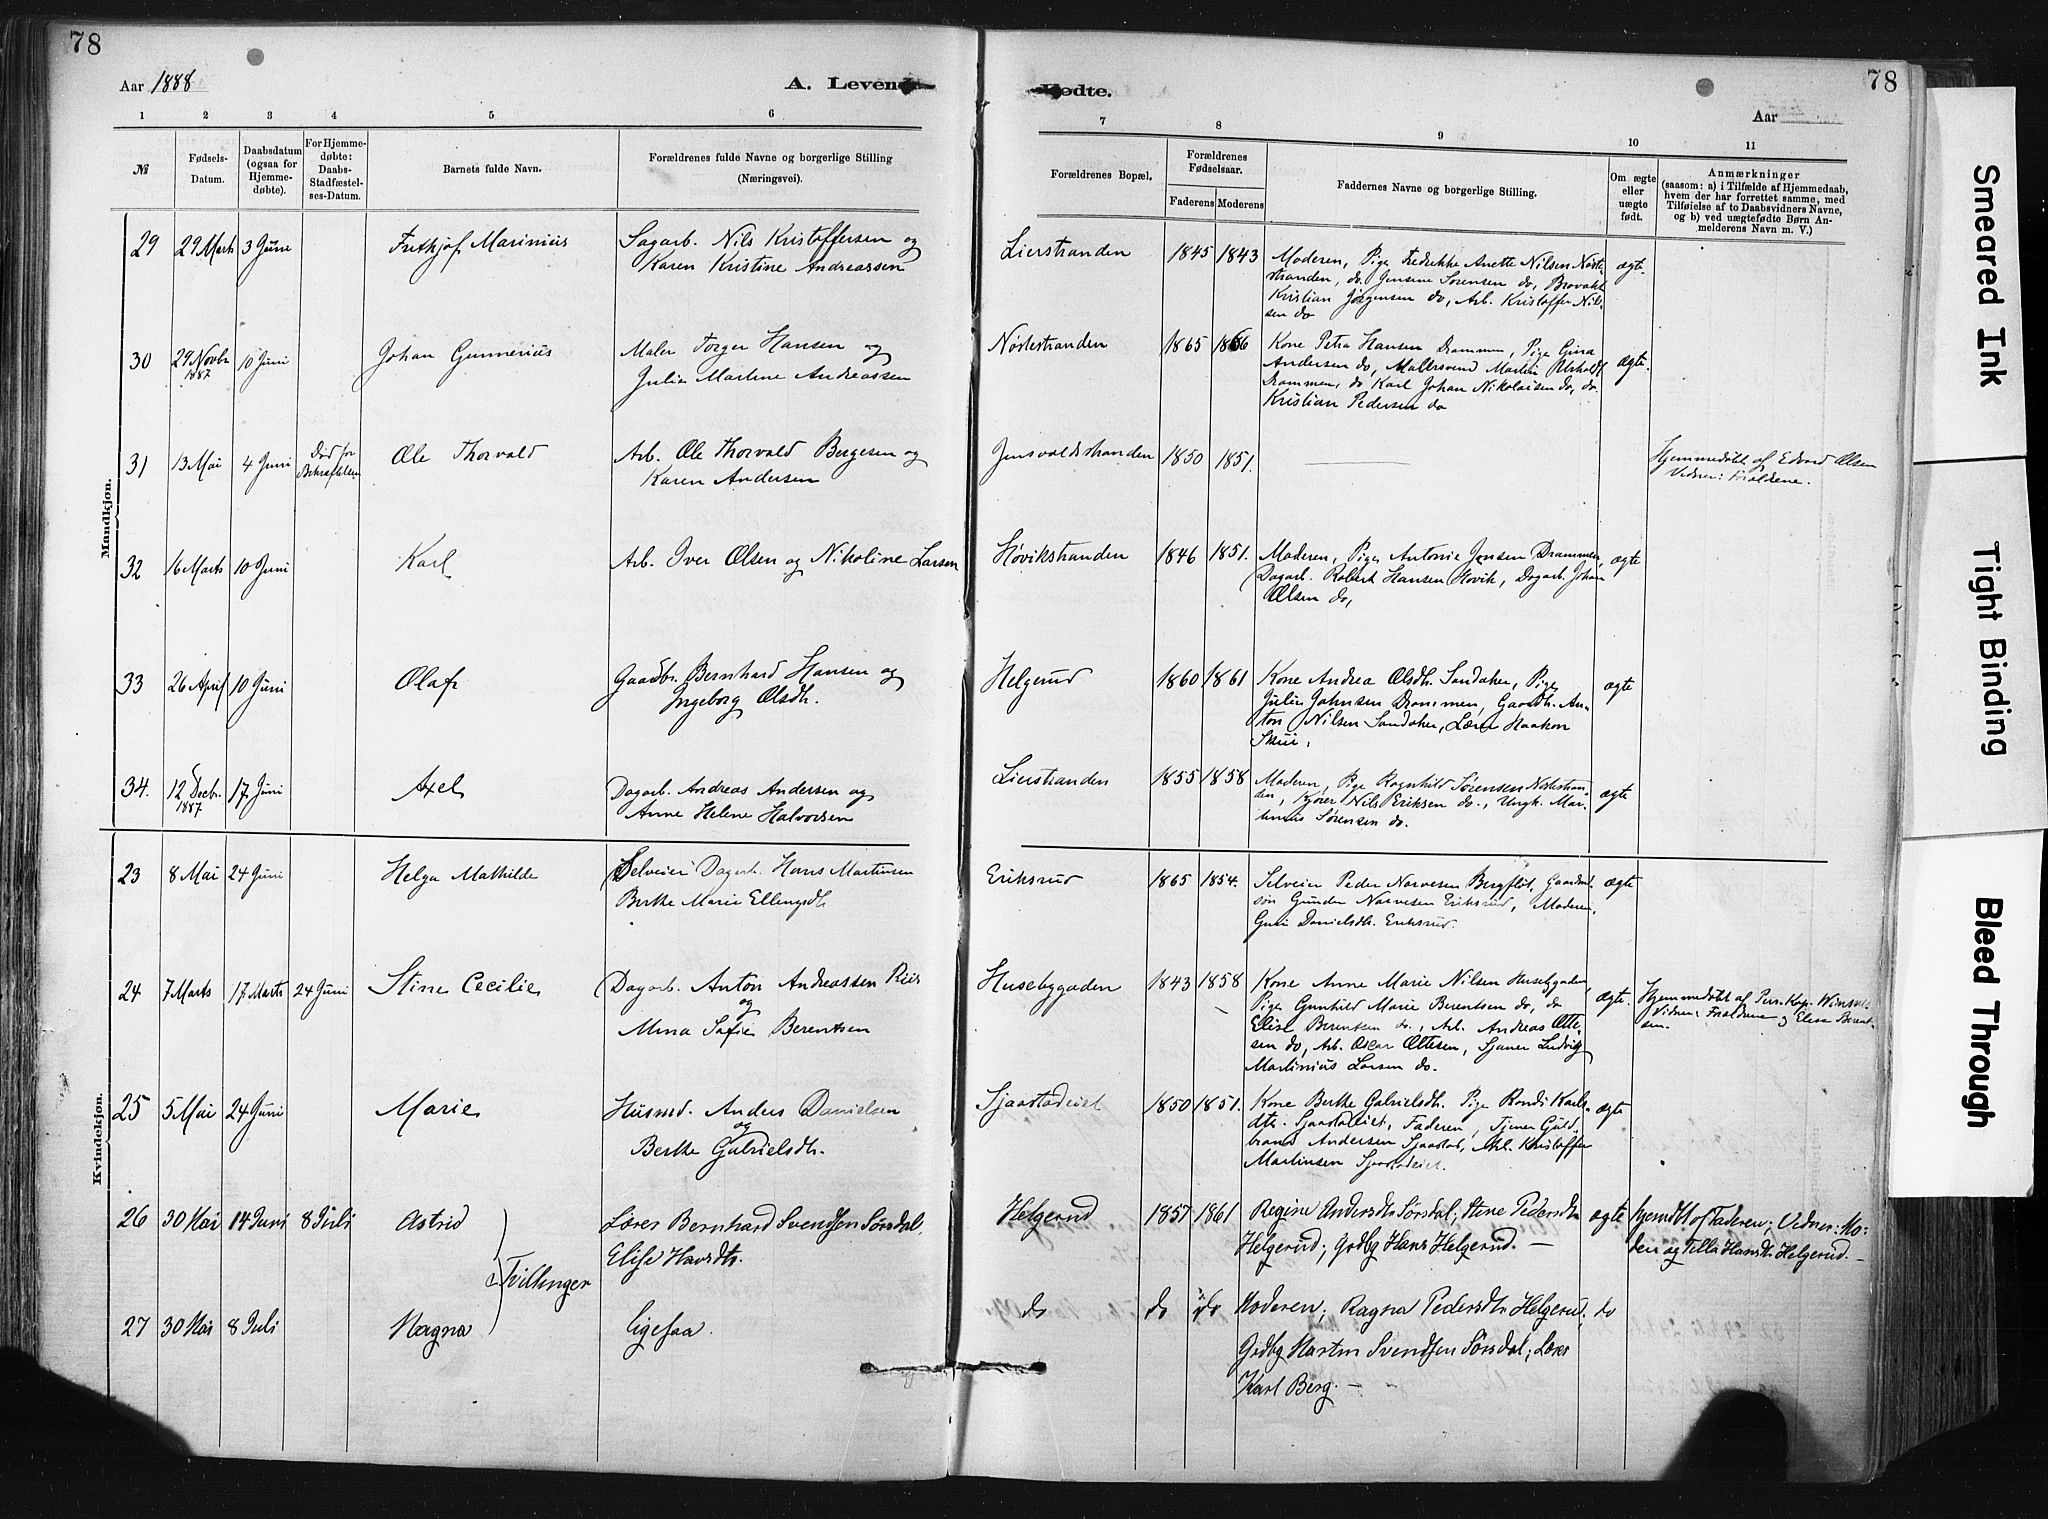 78
78
Aar 1888
A. Levende
Fødte.
Aar
1 2 3 4 5 6
7 8 9 10 11
№
Fødsels-
Datum.
Daabsdatum
(ogsaa for
Hjemme-
døbte).
For Hjemme-
døbte:
Daabs-
Stadfæstel-
ses-Datum.
Barnets fulde Navn.
Forældrenes fulde Navne og borgerlige Stilling
(Næringsvei).
Forældrenes Bopæl.
Forældrenes
Fødselsaar.
Faderens Moderens
Faddernes Navne og borgerlige Stilling.
Om ægte
eller
uægte
født.
Anmærkninger
(saasom: a) i Tilfælde af Hjemmedaab,
hvem der har forrettet samme, med
Tilføielse af to Daabsvidners Navne,
og b) ved uægtefødte Børn An-
melderens Navn m. V.)
Mandkjøn.
29 29 Marts 3 Juni Frithjof Marinius Sagarb. Nils Kristoffersen og
Karen Kristine Andreassen
Lierstranden 1845 1843 Moderen, Pige Fredrikke Anette Nilsen Nøste-
stranden, do. Jensine Sørensen do,
Kristian Jørgensen do, Arb. Kristoffer Nil-
sen do
ægte
30 29 Novbr 1887 10 Juni Johan Gunnerius Maler Torger Hansen og
Julie Martine Andreassen
Nøstestranden 1865 1866 Kone Petra Hansen Drammen, Pige Gina
Andersen do, Malersvend Martin
Drammen, do Karl Johan Nikolaisen do, do
Kristian Pedersen do
ægte.
31 13 Mai 4 Juni Død før
Bekræftelsen
Ole Thorvald Arb. Ole Thorvald Bergesen og
Karen Andersen
Jensvoldstranden 1850 1851.
Hjemmedøbt af Edvard Olsen
Vidner: Forældrene.
32 16 Marts 10 Juni Karl Arb. Iver Olsen og Nikoline Larsen
Høvikstranden 1846 1851. Moderen, Pige Antonie Jensen Drammen,
Dagarb. Robert Hansen Høvik, Dagarb. Johan
Olsen do,
ægte
33 26 April 10 Juni Olaf Gaardbr. Bernhard Hansen og
Ingeborg Olsdtr.
Helgerud 1860 1861 Kone Andrea Olsdtr. Sandaker, Pige
Julie Johnsen Drammen, Gaardbr. An-
ton Nilsen Sandaker, Lærer Haakon
Skui.
ægte
34. 12 Decbr. 1887 17 Juni Axel Dagarb. Andreas Andersen og
Anne Helene Halvorsen
Lierstranden 1855 1858 Moderen, Pige Ragnhild Sørensen Nøstestran-
den, Kjører Nils Eriksen do., Ungk. Mar-
tinius Sørensen do.
ægte
Kvindekjøn.
23 8 Mai 24 Juni Helga Mathilde Selveier Dagarb. Hans Martinsen
Berthe Marie Ellengsdtr.
Eriksrud 1865 1854. Selveier Peder Narvesen Bergflöt, Gaardmd.
søn Gunder Narvesen Eriksrud, Moderen,
Guri Danielsdtr. Eriksrud.
ægte
24 7 Marts 17 Marts 24 Juni Stine Cecilie Dagarb. Anton Andreassen Riis
og
Mina Sofie Berentsen
Husebygaden 1843 1858 Kone Anne Marie Nilsen Husebygaden,
Pige Gunhild Marie Berentsen do, do
Elise Berentsen do., Arb. Andreas Otte-
sen do, Arb. Oscar Ottesen, Tjener Ludvig
Martinius Larsen do.
ægte.
Hjemmedøbt af Pers. Kap. Winsnes
Vidner: Forældrene og Elise Berent-
sen.
25 5 Mai 24 Juni Marie Husmd. Anders Danielsen
og
Berthe Gabrielsdtr.
Sjaastadeiet 1850 1851. Kone Berthe Gabrielsdtr. Pige Randi Karls-
dtr. Sjaastadeiet, Faderen, Tjener Guld-
brand Andersen Sjaastad, Arb. Kristoffer
Martinsen Sjaastadeiet.
ægte
26 30 Mai 14 Juni 8 Juli Astrid Lærer Bernhard Svendsen Sørsdal,
Elise Havsdtr.
Tvillinger
Helgerud 1857 1861 Regine Andersdtr Sørsdal; Stine Pedersdtr
Helgerud; Grdbg Hans Helgerud.—
ægte
hjemdbt af Faderen; Vidner: Mo-
deren og Tilla Hansdtr. Helgerud.—
27 30 Mai 8 Juli Magna ligesaa.
do do do Moderen; Ragna Pedersdtr Helgerud,
Grdbg Martin Svendsen Sørsdal; Lærer
Karl Berg.—
do
Smeared Ink
Tight Binding
Bleed Through